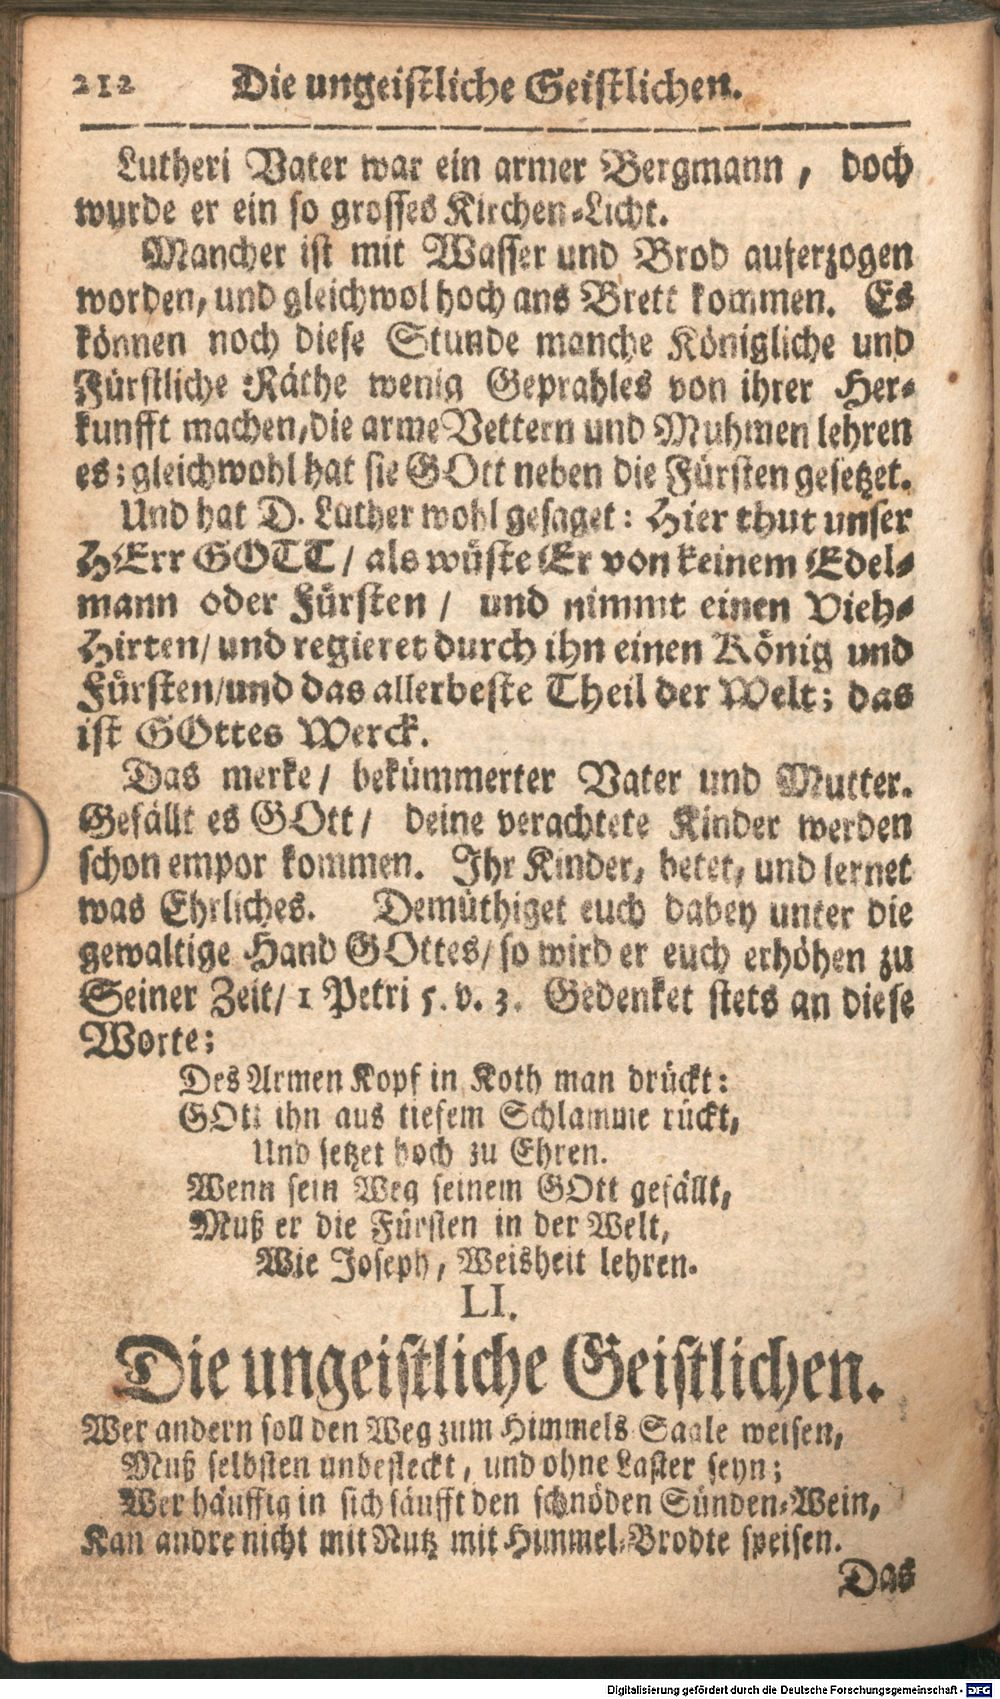 212 Die ungeistliche Geistlichen.
Lutheri Vater war ein armer Bergmann, doch
wurde er ein so grosses Kirchen-Licht.
Mancher ist mit Wasser und Brod auferzogen
worden, und gleichwol hoch ans Brett kommen. Es
können noch diese Stunde manche Königliche und
Fürstliche Räthe wenig Geprahles von ihrer Her-
kunfft machen, die arme Vettern und Muhmen lehren
es; gleichwohl hat sie GOtt neben die Fürsten gesetzet.
Und hat D. Luther wohl gesaget: Hier thut unser
HErr GOTT / als wüste Er von keinem Edel-
mann oder Fürsten / und nimmt einen Vieh-
Hirten / und regieret durch ihn einen König und
Fürsten / und das allerbeste Theil der Welt; das
ist GOttes Werck.
Das merke / bekümmerter Vater und Mutter.
Gefällt es GOtt / deine verachtete Kinder werden
schon empor kommen. Ihr Kinder, betet, und lernet
was Ehrliches. Demüthiget euch dabey unter die
gewaltige Hand GOttes / so wird er euch erhöhen zu
Seiner Zeit / 1 Petri 5. v. 3. Gedenket stets an diese
Worte:
Des Armen Kopf in Koth man drückt:
GOtt ihn aus tiefem Schlamme rückt,
Und setzet hoch zu Ehren.
Wenn sein Weg seinem GOtt gefällt,
Muß er die Fürsten in der Welt,
Wie Joseph, Weisheit lehren.
LI.
Die ungeistliche Geistlichen.
Wer andern soll den Weg zum Himmels-Saale weisen,
Muß selbsten unbefleckt, und ohne Laster seyn;
Wer häuffig in sich säufft den schnöden Sünden-Wein,
Kan andre nicht mit Nutz mit Himmel-Brodte speisen.
Das
Digitalisierung gefördert durch die Deutsche Forschungsgemeinschaft - DFG